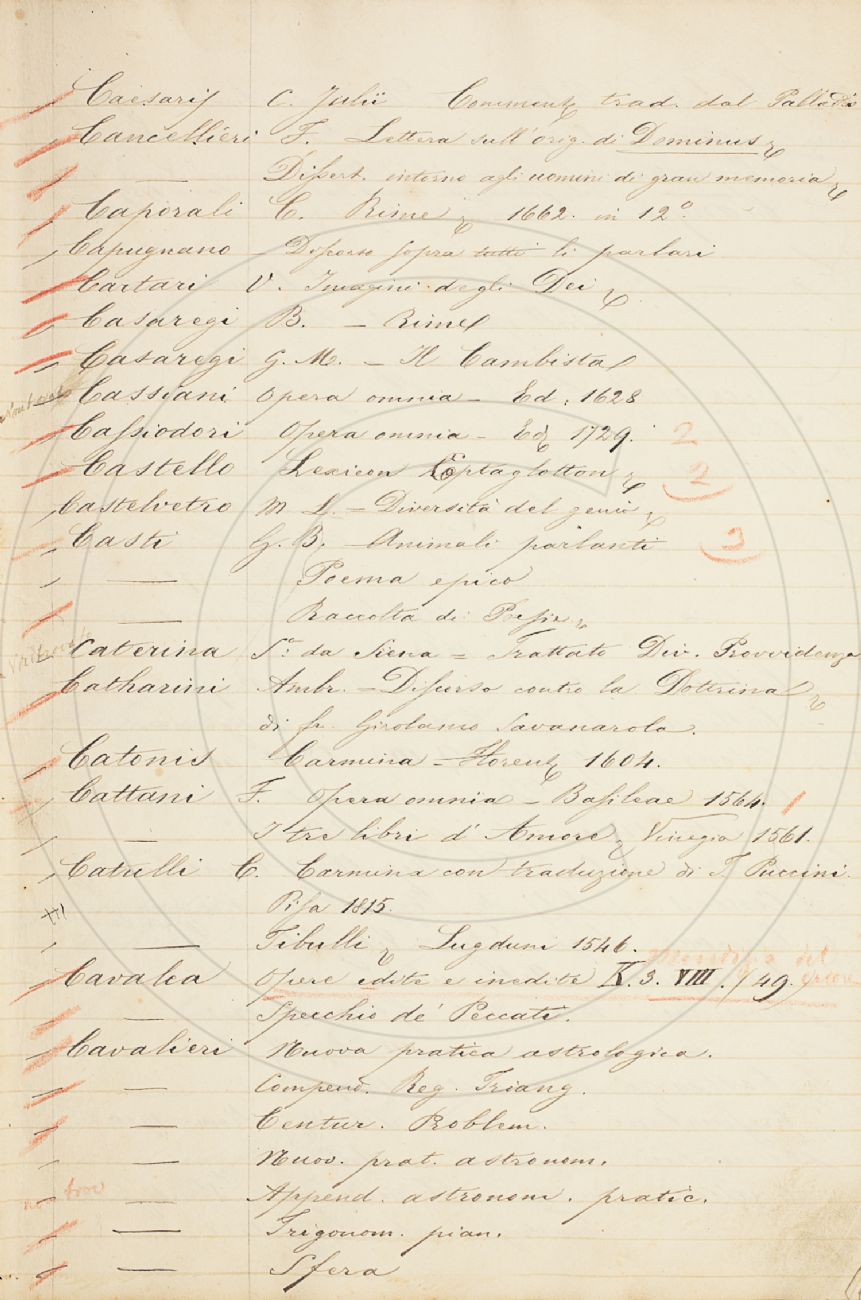 Caesaris C. Julii Comment trad. dal Palladio
Cancellieri F. Lettera sull'orig. di Dominus
— Dissert. intorno agli uomini di gran memoria
Caporali C. Rime 1662. in 12°.
Capugnano — Discorso sopra tutti li parlari
Cartari V. Imagini degli Dei
Casaregi B. — Rime
Casaregi G. M. — Il Cambista
Cassiani Opera omnia — Ed. 1628
Cassiodori Opera omnia — Ed. 1729. 2
Castello Lexicon Eptaglotton 2
Castelvetro — Diversità del genio
Casti G. B. — Animali parlanti 3
— Poema epico
— Raccolta di Poesie
Caterina S.ª da Siena = Trattato Div. Provvidenza
Catharini Ambr. = Discorso contro la Dottrina
di fr. Girolamo Savanarola.
Catonis Carmina — Florent 1604.
Cattani F. Opera omnia — Basileae 1564. 1
— I tre libri d'Amore Vinegia 1561.
Catulli C. Carmina con traduzione di T. Puccini.
Pisa 1815.
— Tibulli Lugduni 1546.
Cavalca Opere edite e inedite X. 3. VIII. / 49.
— Specchio de' Peccati.
Cavalieri Nuova pratica astrologica.
— Compend. Reg. Triang.
— Centur. Problem.
— Nuov. prat. astronom.
non trov — Append. astronom. pratic.
— Trigonom. pian.
— Sfera